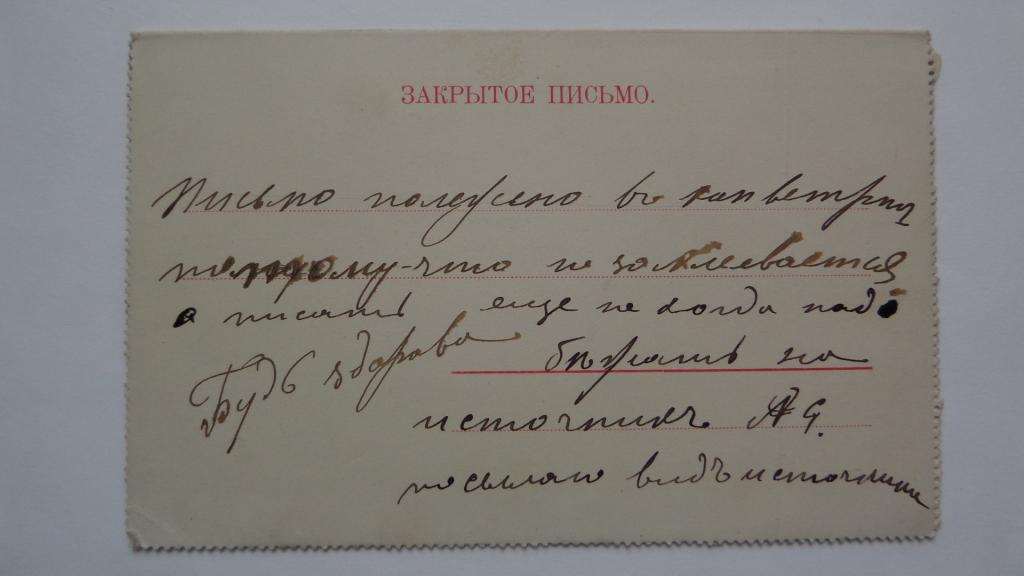 ЗАКРЫТОЕ ПИСЬМО.
Письмо положено въ конвертъ
потому-что не заклевается
а писать еще не когда надо
Будь здорова
бѣжать на
источникъ А
посылаю видъ источника